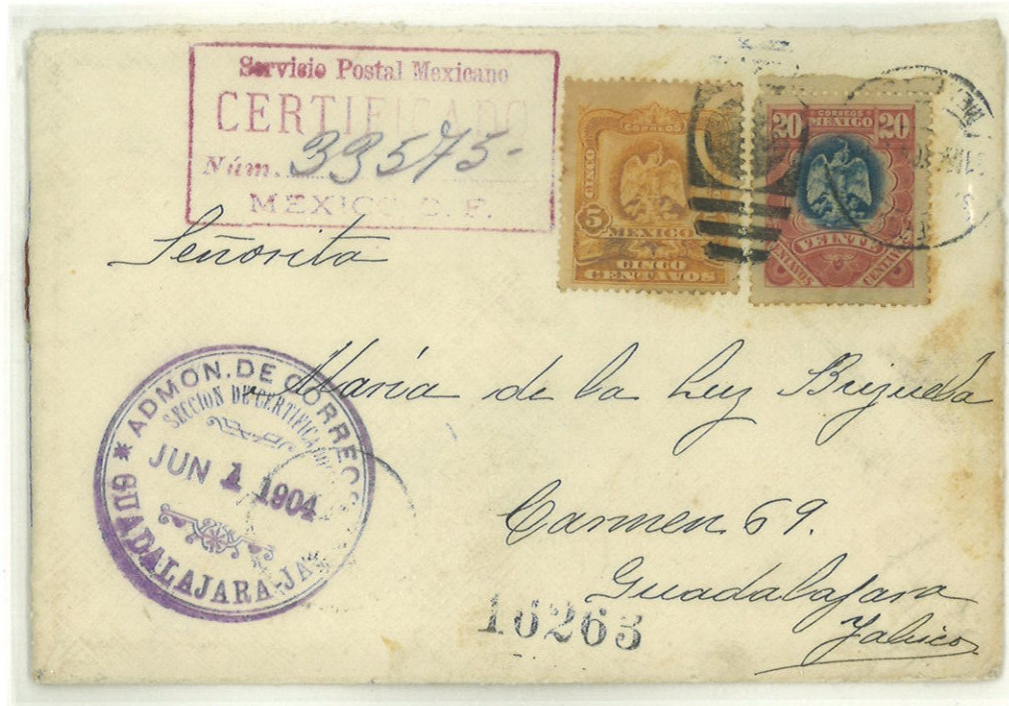 Servicio Postal Mexicano
CERTIFICADO
Núm. 33575-
MEXICO D. F.
CORREOS
CINCO
5
MEXICO
CINCO
CENTAVOS
CORREOS
20 MEXICO 20
VEINTE
CENTAVOS
Señorita
María de la Luz Brizuela
Carmen 69.
Guadalajara
Jalisco
ADMON. DE CORREOS
SECCION DE CERTIFICADOS
JUN 1 1904
GUADALAJARA, JAL
16263